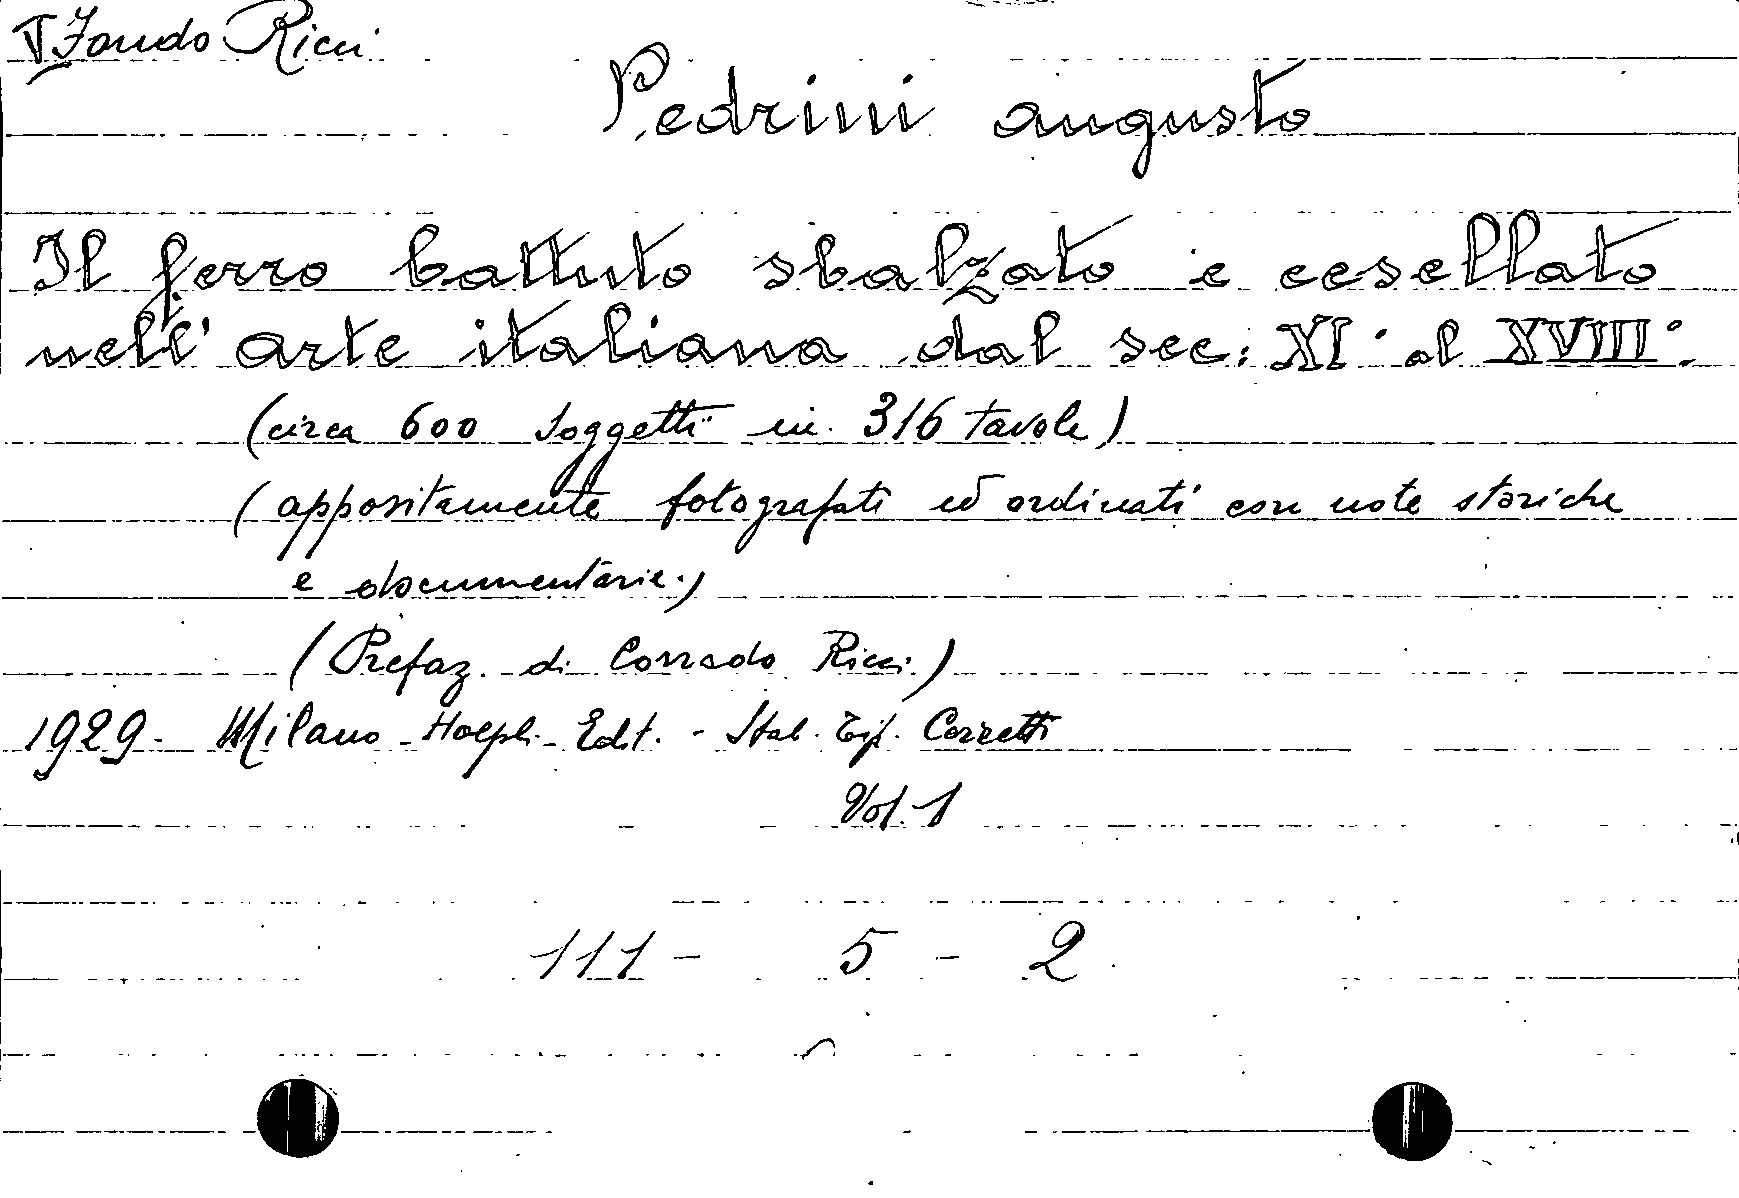 Fondo Ricci
Pedrini augusto
Il ferro battuto sbalzato e cesellato
nell' arte italiana dal sec: XI° al XVIII°.
(circa 600 soggetti in 316 tavole)
(appositamente fotografati ed ordinati con note storiche
e documentarie.)
(Prefaz. di Corrado Ricci)
1929 - Milano - Hoepli - Edit. - Stab. Tip.
Vol. 1
111 - 5 - 2